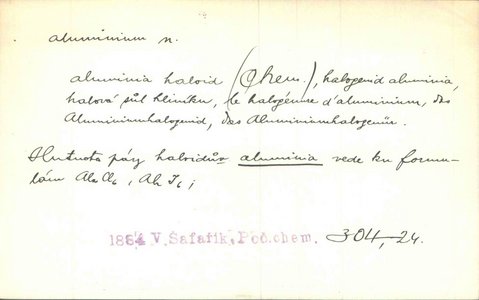 aluminium n.
aluminia haloid (Chem.), halogenid aluminia,
halová sůl hliníku, le halogénure d'aluminium, das
Aluminiumhalogenid, das Aluminiumhalogenür.
Hutnota páry haloidův aluminia vede ku formu-
lám Al₂Cl₆, Al₂I₆;
1884 V. Šafařík, Poč. chem. 304, 24.